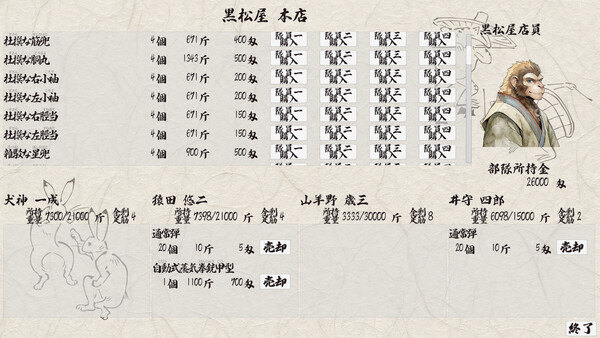 黒松屋 本店
黒松屋店員
杜撰な筋兜 4個 671斤 400匁 隊員一購入 隊員二購入 隊員三購入 隊員四購入
杜撰な胴丸 4個 1543斤 500匁 隊員一購入 隊員二購入 隊員三購入 隊員四購入
杜撰な右小袖 4個 671斤 200匁 隊員一購入 隊員二購入 隊員三購入 隊員四購入
杜撰な左小袖 4個 671斤 200匁 隊員一購入 隊員二購入 隊員三購入 隊員四購入
杜撰な右脛当 4個 671斤 150匁 隊員一購入 隊員二購入 隊員三購入 隊員四購入
杜撰な左脛当 4個 671斤 150匁 隊員一購入 隊員二購入 隊員三購入 隊員四購入
雑駁な星兜 4個 900斤 500匁 隊員一購入 隊員二購入 隊員三購入 隊員四購入
部隊所持金
26000 匁
犬神 一成 猿田 悠二 山羊野 歳三 井守 四郎
所持重量 7300/21000 斤 余剰足筋 4 所持重量 7398/21000 斤 余剰足筋 4 所持重量 3333/30000 斤 余剰足筋 8 所持重量 6098/15000 斤 余剰足筋 2
通常弾 通常弾
20個 10斤 5匁 売却 20個 10斤 5匁 売却
自動式蒸気拳銃甲型
1個 1100斤 700匁 売却
終了